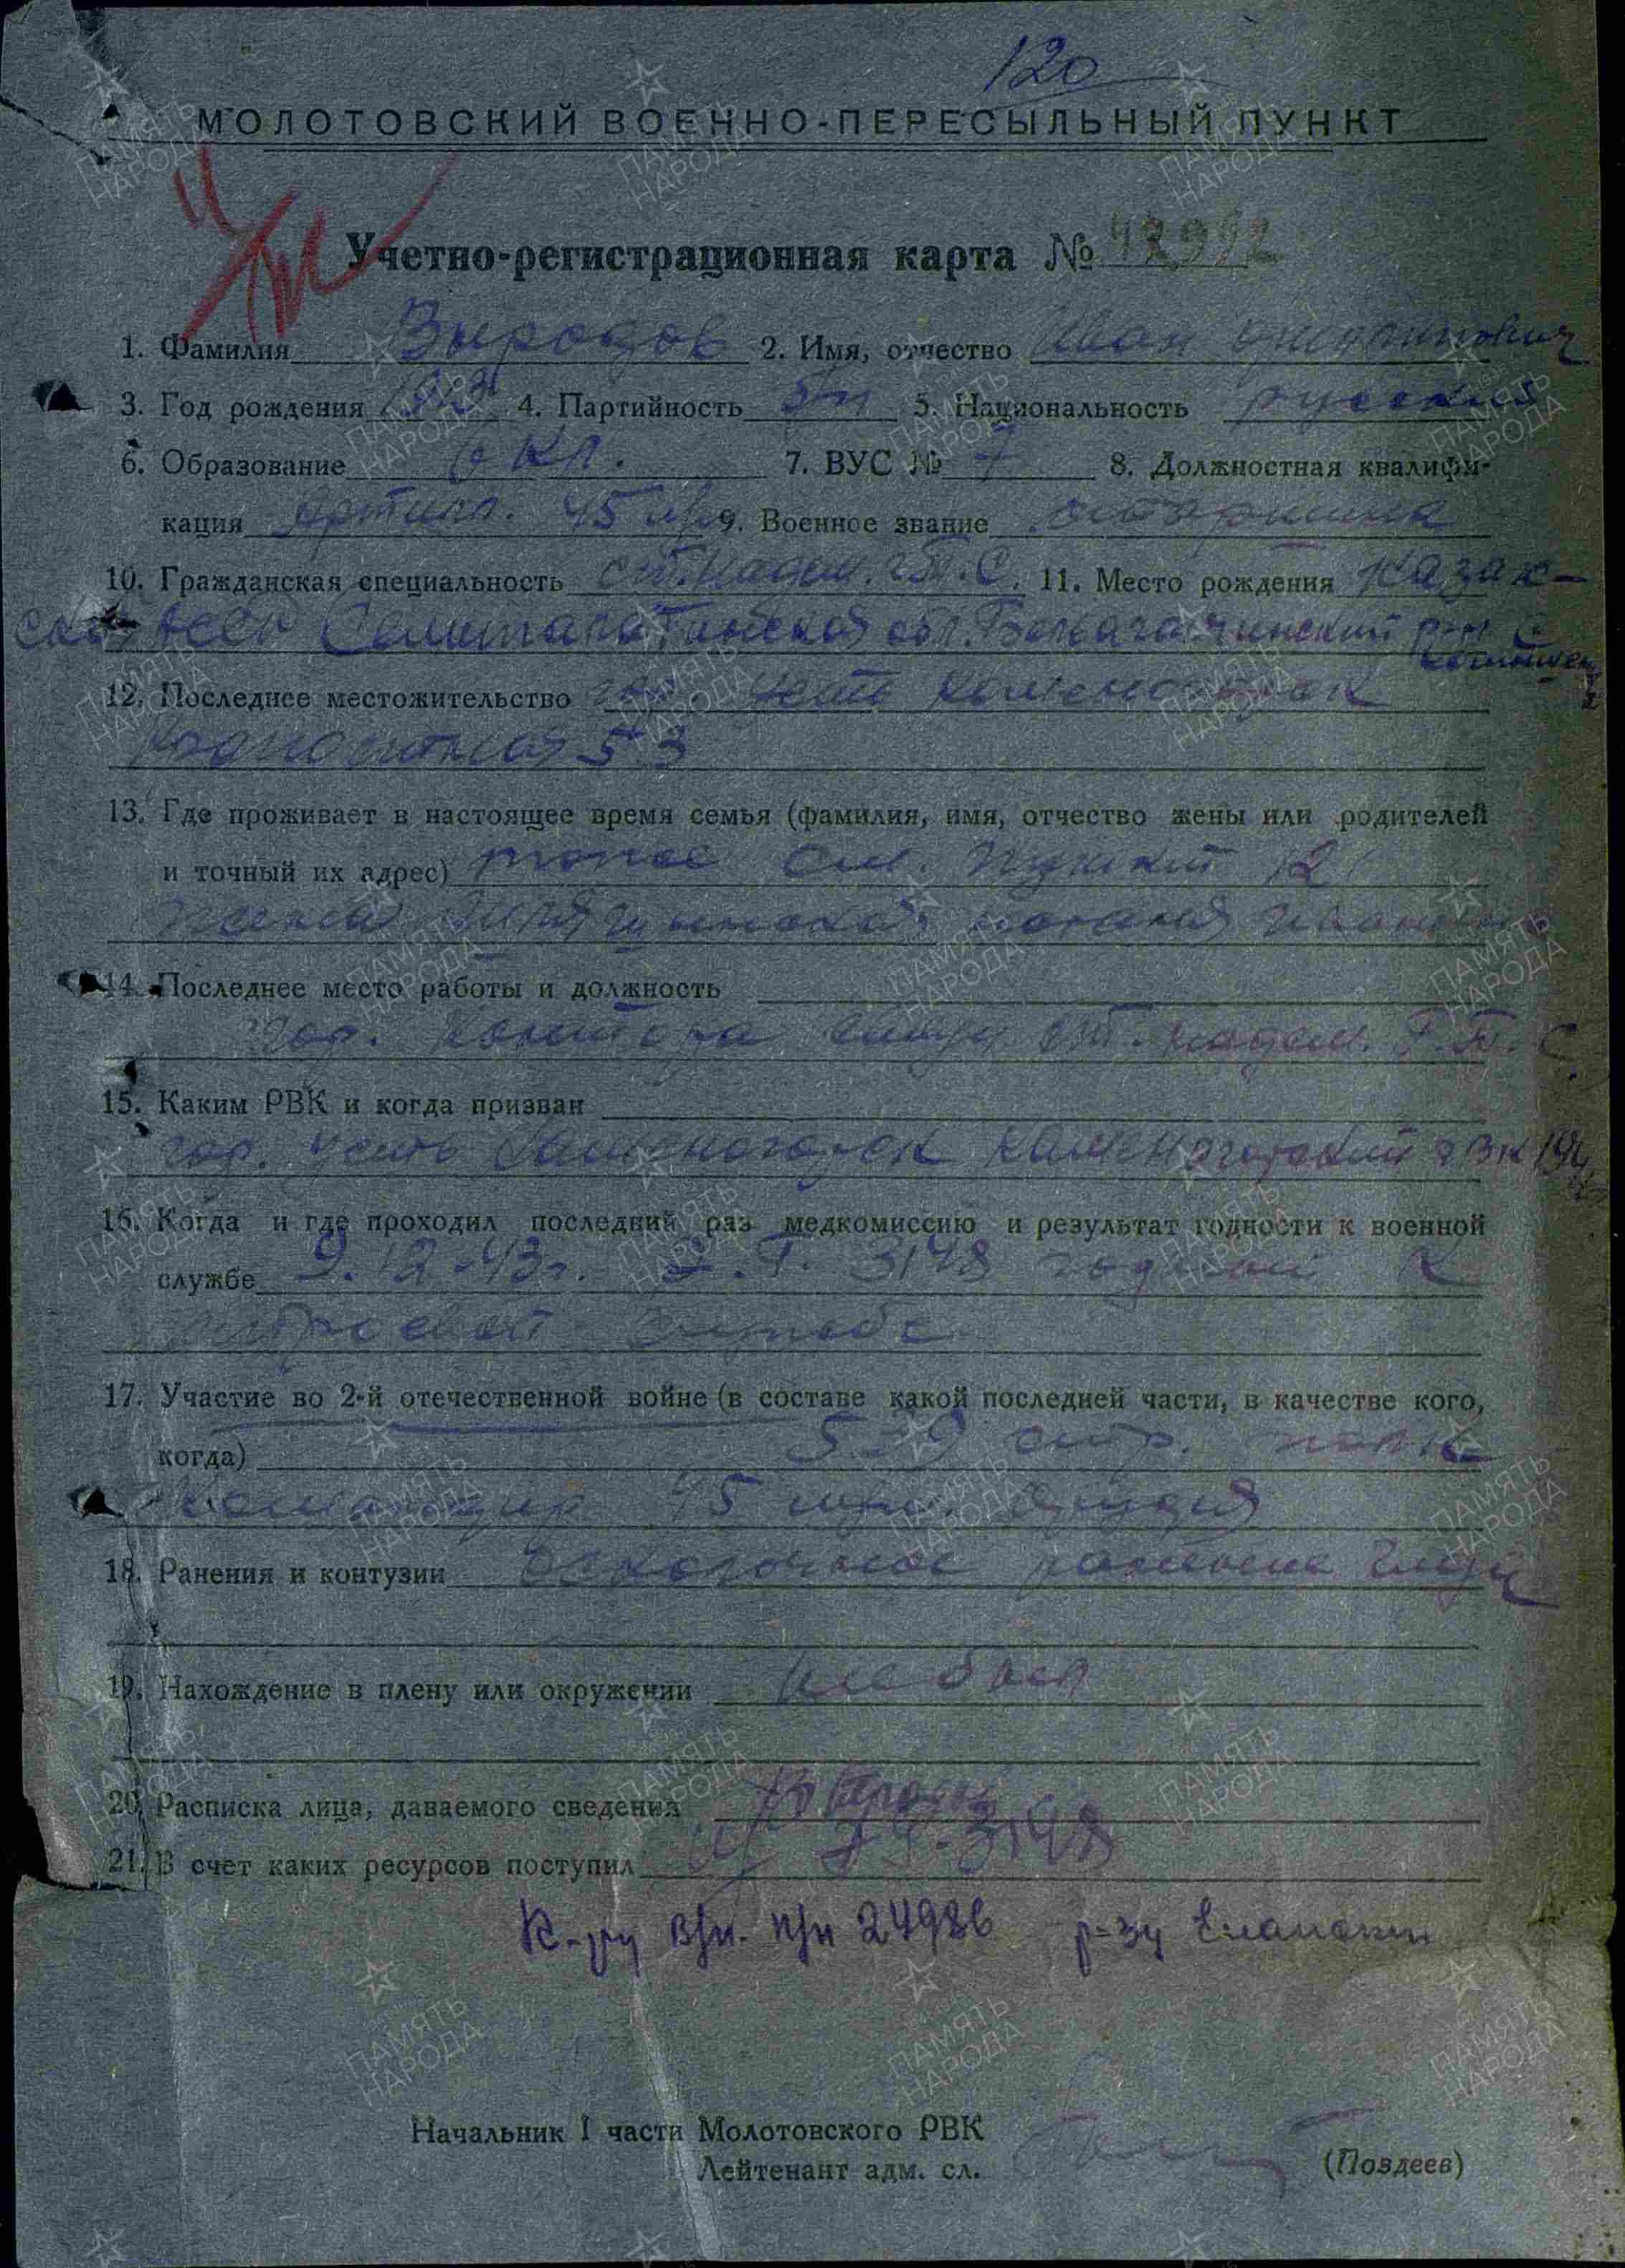 120
МОЛОТОВСКИЙ ВОЕННО-ПЕРЕСЫЛЬНЫЙ ПУНКТ
Учетно-регистрационная карта №
1. Фамилия Выродов 2. Имя, отчество Иван
3. Год рождения 1913 4. Партийность б/п 5. Национальность русский
6. Образование 6 кл. 7. ВУС № 7 8. Должностная квалифи-
кация Артилл. 45 м/м 9. Военное звание старшина
10. Гражданская специальность ст. надсм. г.Т.С. 11. Место рождения Казах-
ская ССР Семипалатинской обл. Бельагачинский р-н с
12. Последнее местожительство гор. Усть Каменогорск
53
13. Где проживает в настоящее время семья (фамилия, имя, отчество жены или родителей
и точный их адрес) см. пункт 12
жена
14. Последнее место работы и должность
гор. Контора связи ст. надсм. Г.Т.С.
15. Каким РВК и когда призван
гор. Усть Каменогорск Каменогорский РВК 194
16. Когда и где проходил последний раз медкомиссию и результат годности к военной
службе 9.12-43г. Э.Г. 3148 годный к
строевой службе
17. Участие во 2-й отечественной войне (в составе какой последней части, в качестве кого,
когда) 539 стр. полк
Командир 45 м/м. орудия
18. Ранения и контузии Осколочное ранение лица
19. Нахождение в плену или окружении не был
20. Расписка лица, даваемого сведения
21. В счет каких ресурсов поступил из ЭГ-3148
К-ру в/ч. п/п 24986 р-зу
Начальник I части Молотовского РВК
Лейтенант адм. сл. (Поздеев)
ПАМЯТЬ НАРОДА